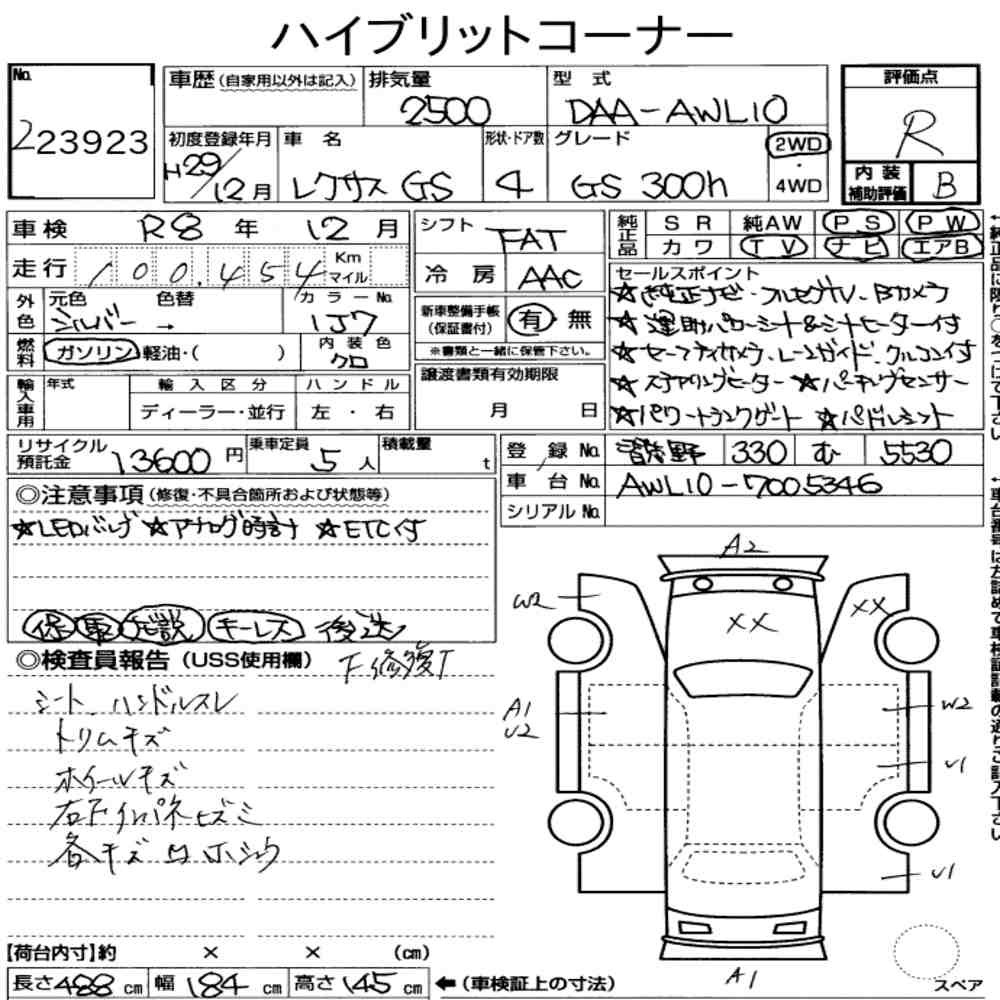 ハイブリットコーナー
No.
223923
車歴 (自家用以外は記入)
排気量
2500
型 式
DAA-AWL10
評価点
R
初度登録年月
H29/12月
車 名
レクサス GS
形状・ドア数
4
グレード
GS 300h
2WD
・
4WD
内 装
補助評価
B
車検 R8 年 12 月
シフト
FAT
純正品
S R 純AW P S P W
カ ワ T V ナ ビ エアB
走行 100,454 Km マイル
冷 房
AAC
セールスポイント
☆純正ナビ・フルセグTV・Bカメラ
☆運助パワーシート&シートヒーター付
☆セーフティカメラ、レーンガイド、クルコン付
☆ステアリングヒーター ☆パーキングセンサー
☆パワートランクゲート ☆パドルシフト
外色
元色
シルバー →
色替
カラーNo.
1J7
新車整備手帳
(保証書付)
有・無
※書類と一緒に保管下さい。
燃料
ガソリン・軽油・( )
内 装 色
クロ
譲渡書類有効期限
月 日
輸入車用
年式
輸 入 区 分
ディーラー・並行
ハ ン ド ル
左 ・ 右
リサイクル
預託金
13600 円
乗車定員
5 人
積載量
t
登 録 No.
330 む 5530
車 台 No.
AWL10-7005346
シリアル No.
◎注意事項 (修復・不具合箇所および状態等)
☆LEDバルブ ☆アナログ時計 ☆ETC付
保 取 記説 キーレス 後送
◎検査員報告 (USS使用欄)
下修復T
シート、ハンドルスレ
トリムキズ
ホイールキズ
右下インパネヒズミ
各キズ凹ホシュウ
A2
W2
XX
XX
A1
U2
W2
U1
U1
A1
スペア
【荷台内寸】約 × × (cm)
長さ 488 cm 幅 184 cm 高さ 145 cm
←(車検証上の寸法)